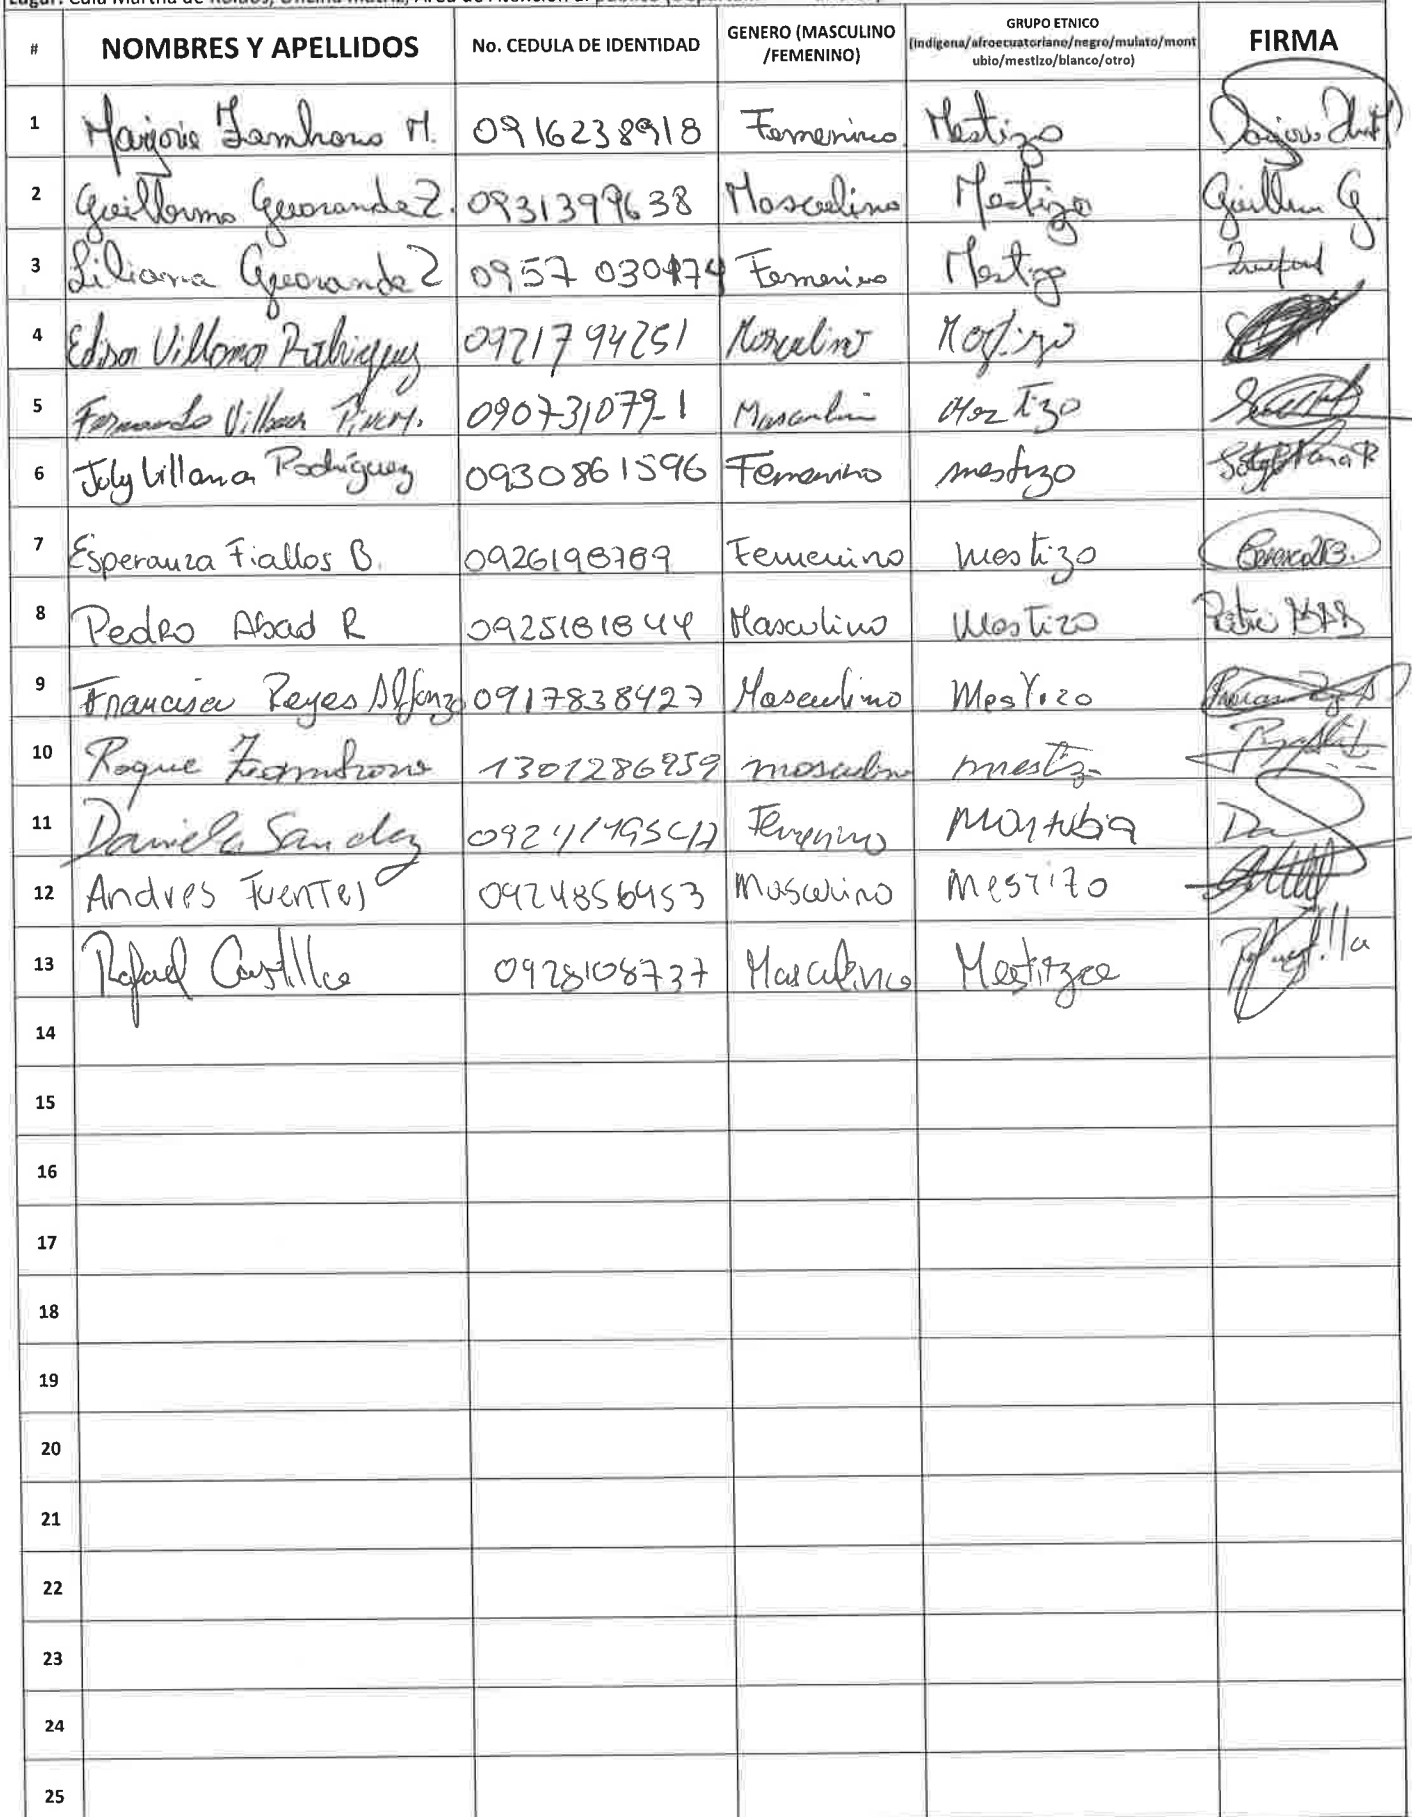 Lugar: Cdla Martha de Roldós, Oficina Matriz, Área de Atención al público
# NOMBRES Y APELLIDOS No. CEDULA DE IDENTIDAD GENERO (MASCULINO /FEMENINO) GRUPO ETNICO (indígena/afroecuatoriano/negro/mulato/mont ubio/mestizo/blanco/otro) FIRMA
1 Marjorie Zambrano M. 0916238918 Femenino Mestizo
2 Guillermo Guaranda Z. 0931399638 Masculino Mestizo Guillermo G.
3 Liliana Guaranda Z 0957 030174 Femenino Mestizo
4 Edison Villamar Rodriguez 0921794251 Masculino Mestizo
5 Fernando Villamar 090731079-1 Masculino Mestizo
6 July Villamar Rodríguez 0930861596 Femenino mestizo
7 Esperanza Fiallos B. 0926198789 Femenino Mestizo
8 Pedro Abad R 0925181844 Masculino Mestizo
9 Francisco Reyes Alfonzo 0917838427 Masculino Mestizo
10 Roque Zambrano 1301286959 masculino mestizo
11 Daniela Sanchez Femenino Montubia
12 Andres Fuentes 0924856453 Masculino Mestizo
13 Rafael Castillo 0928108737 Masculino Mestizo
14
15
16
17
18
19
20
21
22
23
24
25